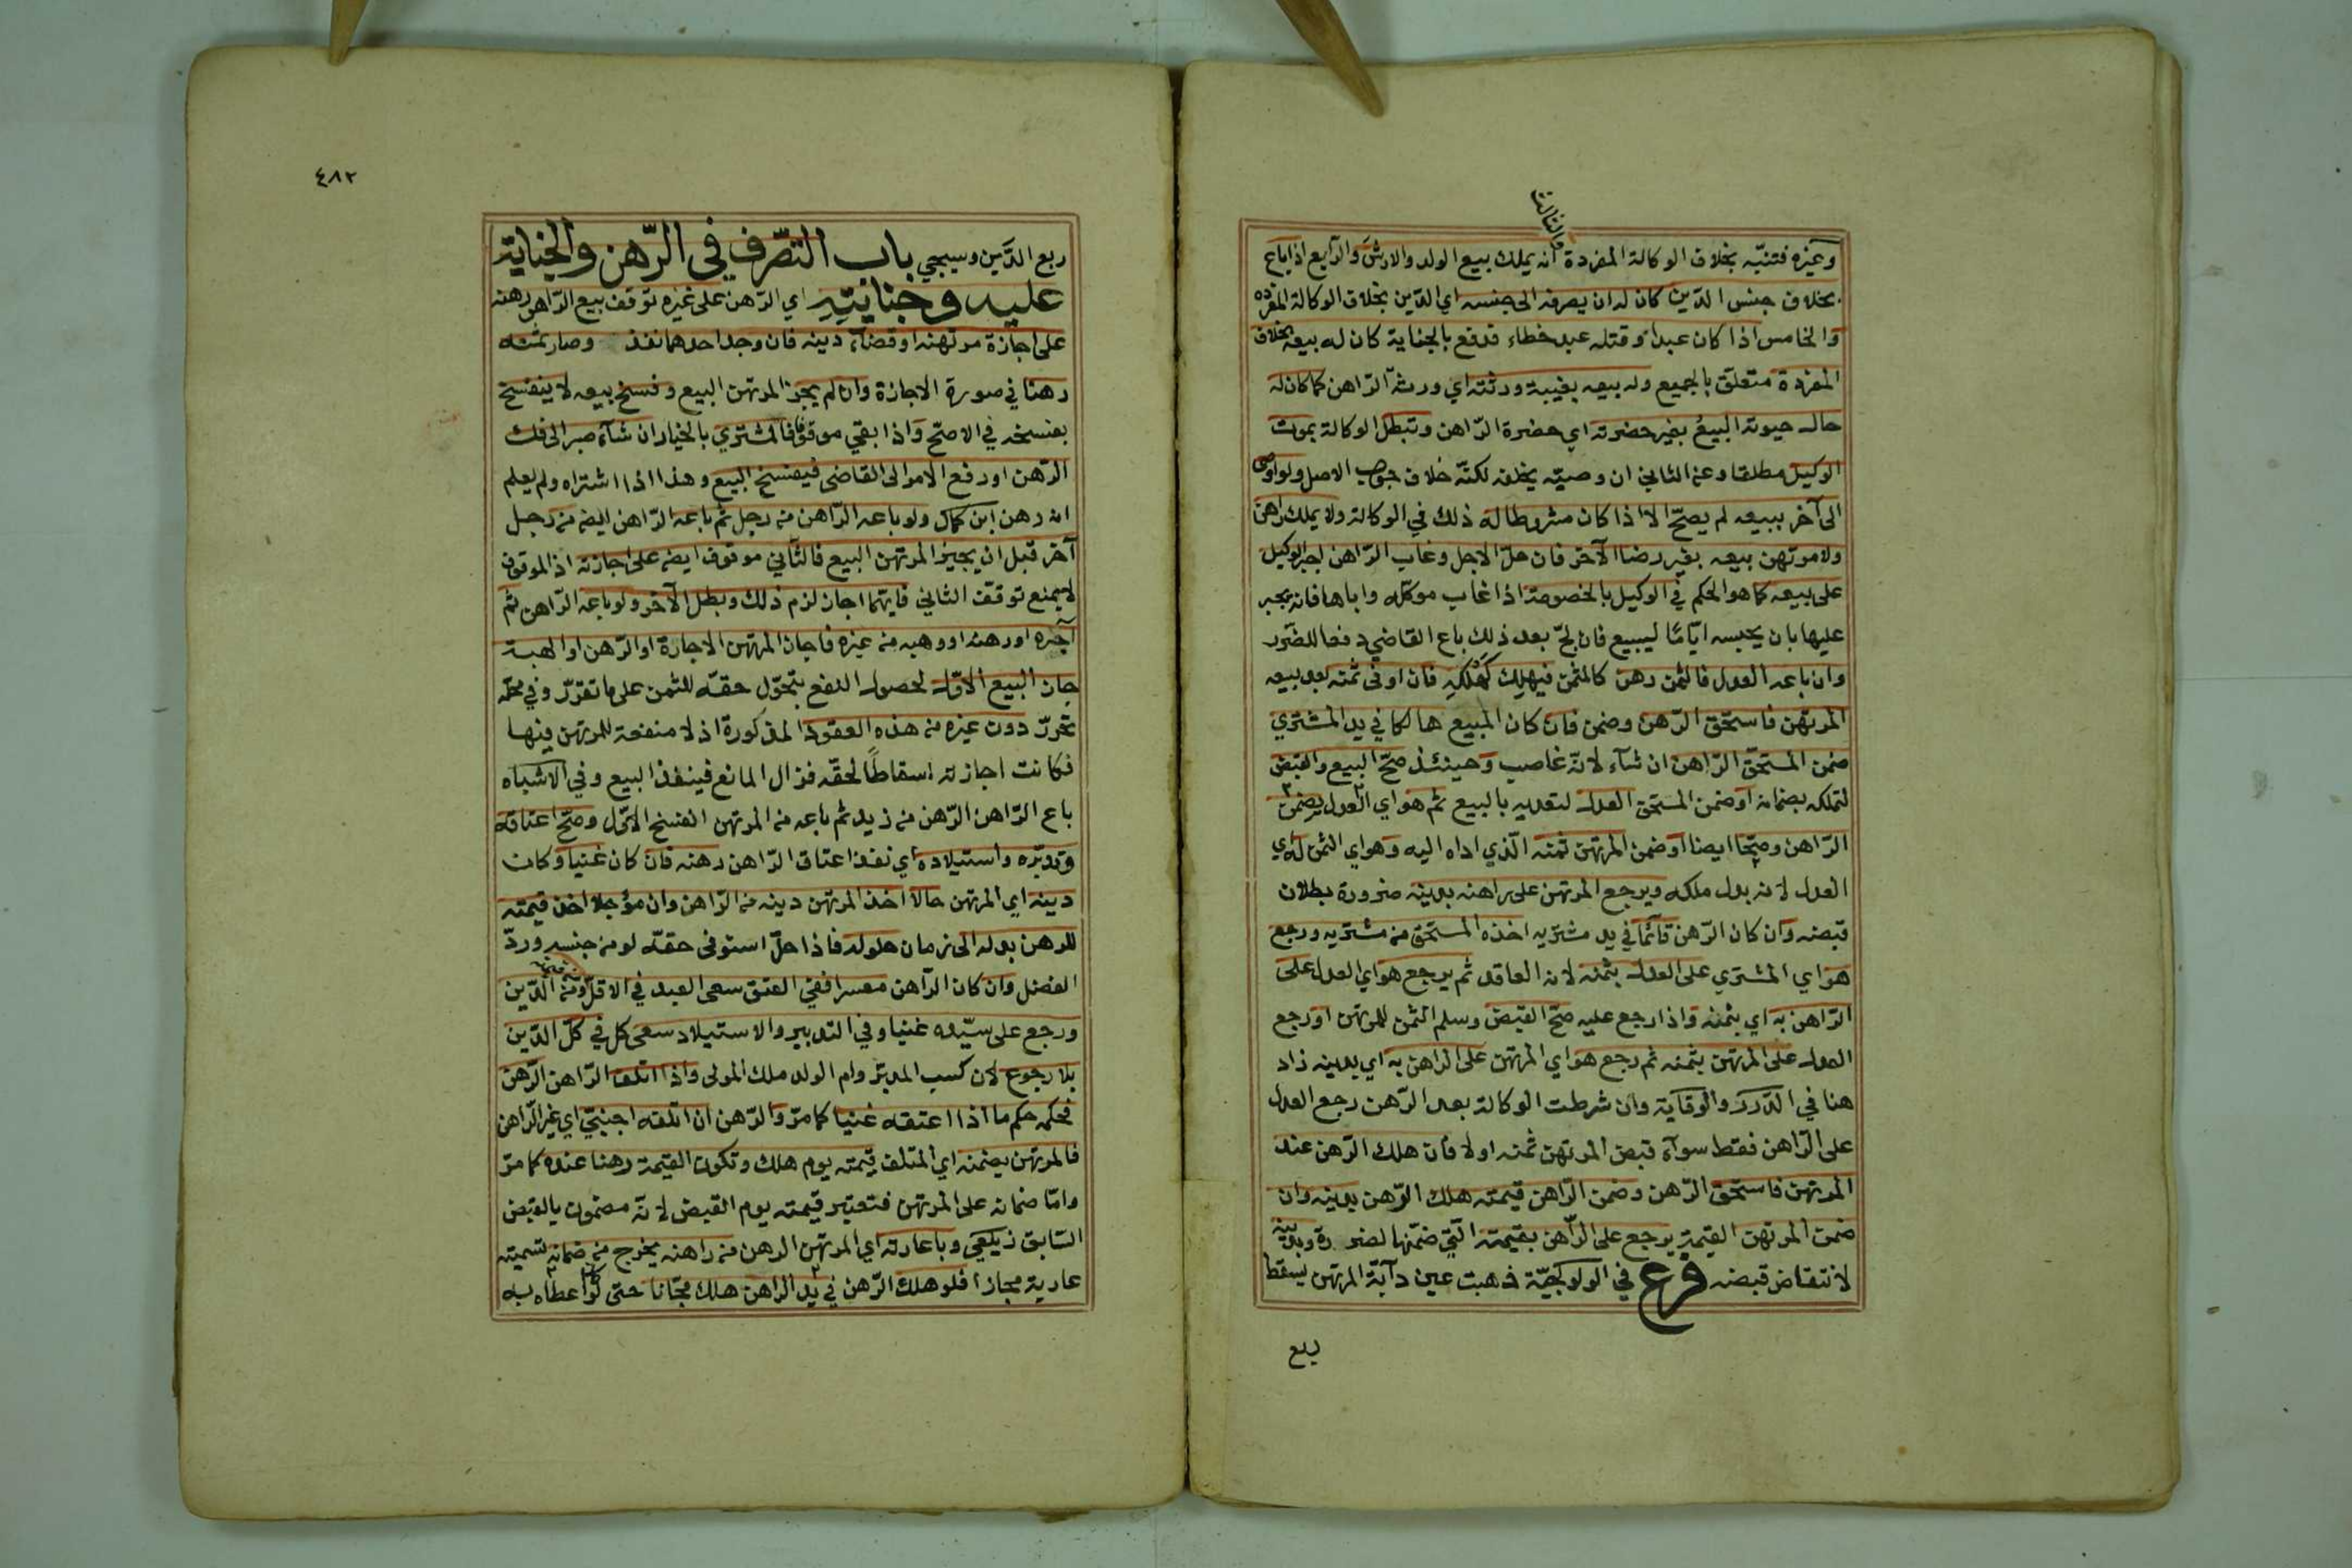 والثالث
وغيره فتنبّه بخلاف الوكالة المفردة انه يملك بيع الولد والارش والرّابع اذا باع
بخلاف جنس الدّين كان له ان يصرفه الى جنسه اي الدّين بخلاف الوكالة المفرده
والخامس اذا كان عبدا وقتله عبد خطاء فدفع بالجناية كان له بيعه بخلاف
المفردة متعلق بالجميع وله بيعه بغيبة ورثته اي ورثة الرّاهن كما كان له
حال حيوته البيع بغير حضرته اي حضرة الرّاهن وتبطل الوكالة بموت
الوكيل مطلقا وعن الثاني ان وصيّه يخلفه لكنّه خلاف جواب الاصل ولو اوصى
الى آخر ببيعه لم يصحّ الا اذا كان مشروطا له ذلك في الوكالة ولا يملك راهن
ولا مرتهن بيعه بغير رضا الآخر فان حلّ الاجل وغاب الرّاهن اجبر الوكيل
على بيعه كما هو الحكم في الوكيل بالخصومة اذا غاب موكله واباها فانه يجبر
عليها بان يحبسه ايّامًا ليبيع فان لجّ بعد ذلك باع القاضي دفعا للضّرر
وان باعه العدل فالثمن رهن كالمثمن فيهلك كهلكه فان اوفى ثمنه بعد بيعه
المرتهن فاستحق الرّهن وضمن فان كان المبيع هالكا في يد المشتري
ضمن المستحق الرّاهن ان شآء لانّه غاصب وحينئذ صحّ البيع والقبض
لتملكه بضمانه او ضمن المستحق العدل لتعديه بالبيع ثم هو اي العدل يضمن
الرّاهن وصحّا ايضا او ضمن المرتهن ثمنه الّذي اداه اليه وهو اي الثمن له اي
العدل لانه بدل ملكه ويرجع المرتهن على راهنه بدينه ضرورة بطلان
قبضه وان كان الرّهن قائمًا في يد مشتريه اخذه المستحق من مشتريه ورجع
هو اي المشتري على العدل بثمنه لانه العاقد ثم يرجع هو اي العدل على
الرّاهن به اي بثمنه واذا رجع عليه صحّ القبض وسلم الثمن للمرتهن او رجع
العدل على المرتهن بثمنه ثم رجع هو اي المرتهن على الراهن به اي بدينه زاد
هنا في الدّرر والوقاية وان شرطت الوكالة بعد الرّهن رجع العدل
على الرّاهن فقط سوآء قبض المرتهن ثمنه اولا فان هلك الرّهن عند
المرتهن فاستحق الرّهن وضمن الرّاهن قيمته هلك الرّهن بدينه وان
ضمن المرتهن القيمة يرجع على الرّاهن بقيمته الّتي ضمّنها لضرره وبدينه
لانتقاض قبضه فرع في الولوالجيّة ذهبت عين دآبّة المرتهن يسقط
ربع
٤٨٢
ربع الدَّين وسيجي باب التصّرف في الرّهن والجناية
عليه وجنايتِه اي الرّهن على غيره توقف بيع الرّاهن رهنه
على اجازة مرتهنه او قضآء دينه فان وجد احدهما نفذ وصار ثمنه
رهنا في صورة الاجازة وان لم يجز المرتهن البيع وفسخ بيعه لا ينفسخ
بفسخه في الاصحّ واذا بقي موقوفا فالمشتري بالخيار ان شآء صبر الى فك
الرّهن او رفع الامر الى القاضى فيفسخ البيع وهذا اذا اشتراه ولم يعلم
انه رهن ابن كمال ولو باعه الرّاهن من رجل ثم باعه الرّاهن ايضه من رجل
آخر قبل ان يجيز المرتهن البيع فالثّاني موقوف ايضه على اجازته اذ الموقوف
لا يمنع توقّف الثاني فايّهما اجاز لزم ذلك وبطل الآخر ولو باعه الرّاهن ثم
آجره او رهنه او وهبه من غيره فاجاز المرتهن الاجارة او الرّهن او الهبة
جاز البيع الاوّل لحصول النفع بتحوّل حقّه للثمن على ما تقرّر وفي محلّه
تحرّر دون غيره من هذه العقود المذكورة اذ لا منفعة للمرتهن فيها
فكانت اجازته اسقاطًا لحقّه فزال المانع فينفذ البيع وفي الاشباه
باع الرّاهن الرّهن من زيد ثم باعه من المرتهن انفسخ الاوّل وصحّ اعتاقه
وتدبيره واستيلاده اي نفذ اعتاق الرّاهن رهنه فان كان غنيا وكان
دينه اي المرتهن حالا اخذ المرتهن دينه من الرّاهن وان مؤجلا اخذ قيمته
للرهن بدله الى زمان حلوله فاذا حلّ استوفى حقّه لو من جنسه وردّ
الفضل وان كان الرّاهن معسرا ففي العتق سعى العبد في الاقل من قيمته ومن الدّين
ورجع على سيّده غنيا وفي التدبير والاستيلاد سعى كل في كلّ الدّين
بلا رجوع لان كسب المدبّر وام الولد ملك المولى واذا اتلف الرّاهن الرّهن
فحكمه حكم ما اذا اعتقه غنيا كما مرّ والرّهن ان اتلفه اجنبيّ اي غير الرّاهن
فالمرتهن يضمنه اي المتلف قيمته يوم هلك وتكون القيمة رهنا عنده كما مرّ
وامّا ضمانه على المرتهن فتعتبر قيمته يوم القبض لانّه مضمون بالقبض
السّابق زيلعي وباعارته اي المرتهن الرهن من راهنه يخرج من ضمانه لتسميته
عارية مجازا فلو هلك الرّهن في يد الراهن هلك مجّانا حتى لو اعطاه به